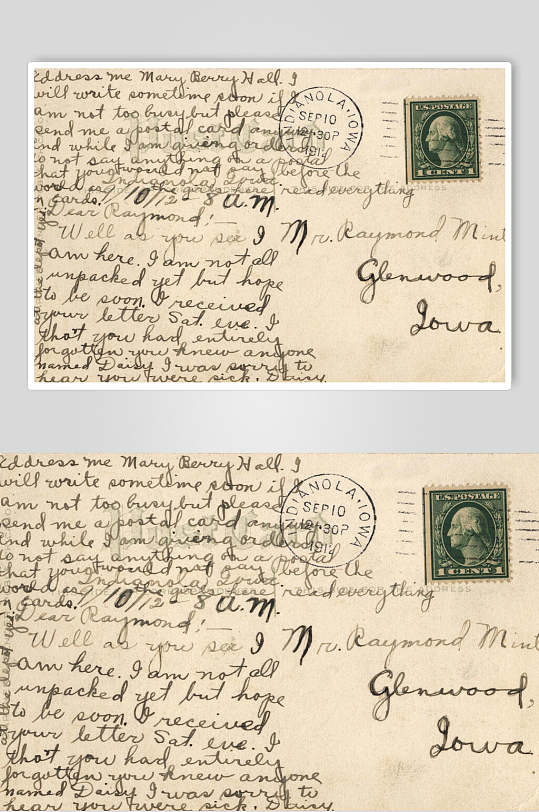 Address me Mary Berry Hall. I
will write sometime soon if I
am not too busy but please
send me a postal card anyway
and while I am giving orders
to not say anything on a postal
that you would not say before the
Indianola Iowa
world as the girls here read everything
n cards. 9/10/12 - 8 a.m.
Dear Raymond! —
Well as you see I
am here. I am not all
unpacked yet but hope
to be soon. I received
your letter Sat. eve. I
that you had entirely
forgotten you knew anyone
named Daisy I was sorry to
hear you were sick. Daisy
at the depot yes.
INDIANOLA, IOWA
SEP 10
12-30P
191
U.S. POSTAGE
1 CENT 1
DRESS
Mr. Raymond Mint
Glenwood,
Iowa
Address me Mary Berry Hall. I
will write sometime soon if I
am not too busy but please
send me a postal card anyway
and while I am giving orders
to not say anything on a postal
that you would not say before the
Indianola Iowa
world as the girls here read everything
n cards. 9/10/12 - 8 a.m.
Dear Raymond! —
Well as you see I
am here. I am not all
unpacked yet but hope
to be soon. I received
your letter Sat. eve. I
that you had entirely
forgotten you knew anyone
named Daisy I was sorry to
hear you were sick. Daisy
at the depot yes.
DIANOLA, IOWA
SEP 10
12-30P
191
U.S. POSTAGE
1 CENT 1
DRESS
Mr. Raymond Mint
Glenwood,
Iowa